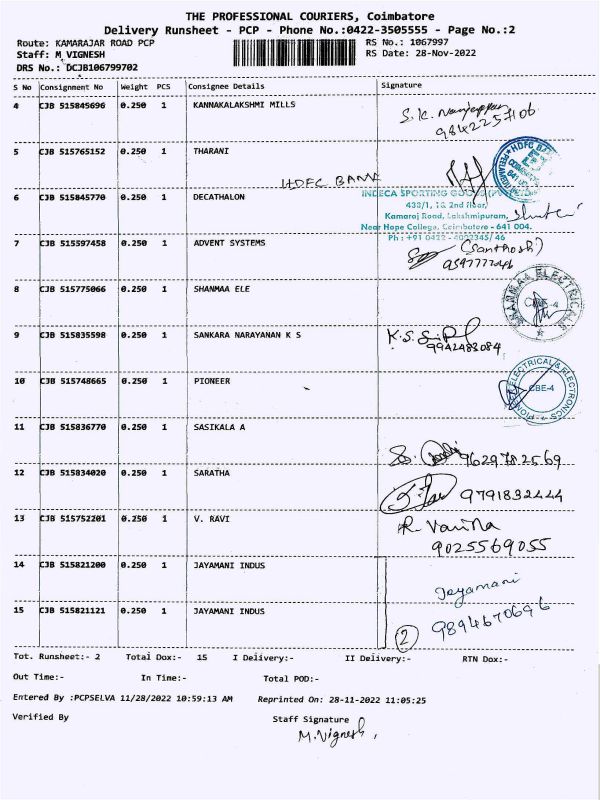 THE PROFESSIONAL COURIERS, Coimbatore
Delivery Runsheet - PCP - Phone No.:0422-3505555 - Page No.:2
Route: KAMARAJAR ROAD PCP RS No.: 1067997
Staff: M VIGNESH RS Date: 28-Nov-2022
DRS No.: DCJB106799702
S No Consignment No Weight PCS Consignee Details Signature
4 CJB 515845696 0.250 1 KANNAKALAKSHMI MILLS
S.K. Nanjappan
9842257106
5 CJB 515765152 0.250 1 THARANI
HDFC BANK
6 CJB 515845770 0.250 1 DECATHALON
INDECA SPORTING GOODS
433/1, 1& 2nd floor,
Kamaraj Road, Lakshmipuram,
Near Hope College, Coimbatore - 641 004.
Ph : +91 0422 - 4003345/ 46
7 CJB 515597458 0.250 1 ADVENT SYSTEMS
(Santhosh)
8 CJB 515775066 0.250 1 SHANMAA ELE
SHANMAA ELECTRICALS
CBE-4
9 CJB 515835598 0.250 1 SANKARA NARAYANAN K S
K.S.
9942483084
10 CJB 515748665 0.250 1 PIONEER
PIONEER ELECTRICAL & ELECTRONICS
CBE-4
11 CJB 515836770 0.250 1 SASIKALA A
9629782569
12 CJB 515834020 0.250 1 SARATHA
9791832444
13 CJB 515752201 0.250 1 V. RAVI
R. Vanitha
9025569055
14 CJB 515821200 0.250 1 JAYAMANI INDUS
Jayamani
15 CJB 515821121 0.250 1 JAYAMANI INDUS
9894670696
2
Tot. Runsheet:- 2 Total Dox:- 15 I Delivery:- II Delivery:- RTN Dox:-
Out Time:- In Time:- Total POD:-
Entered By :PCPSELVA 11/28/2022 10:59:13 AM Reprinted On: 28-11-2022 11:05:25
Verified By Staff Signature
M.Vignesh